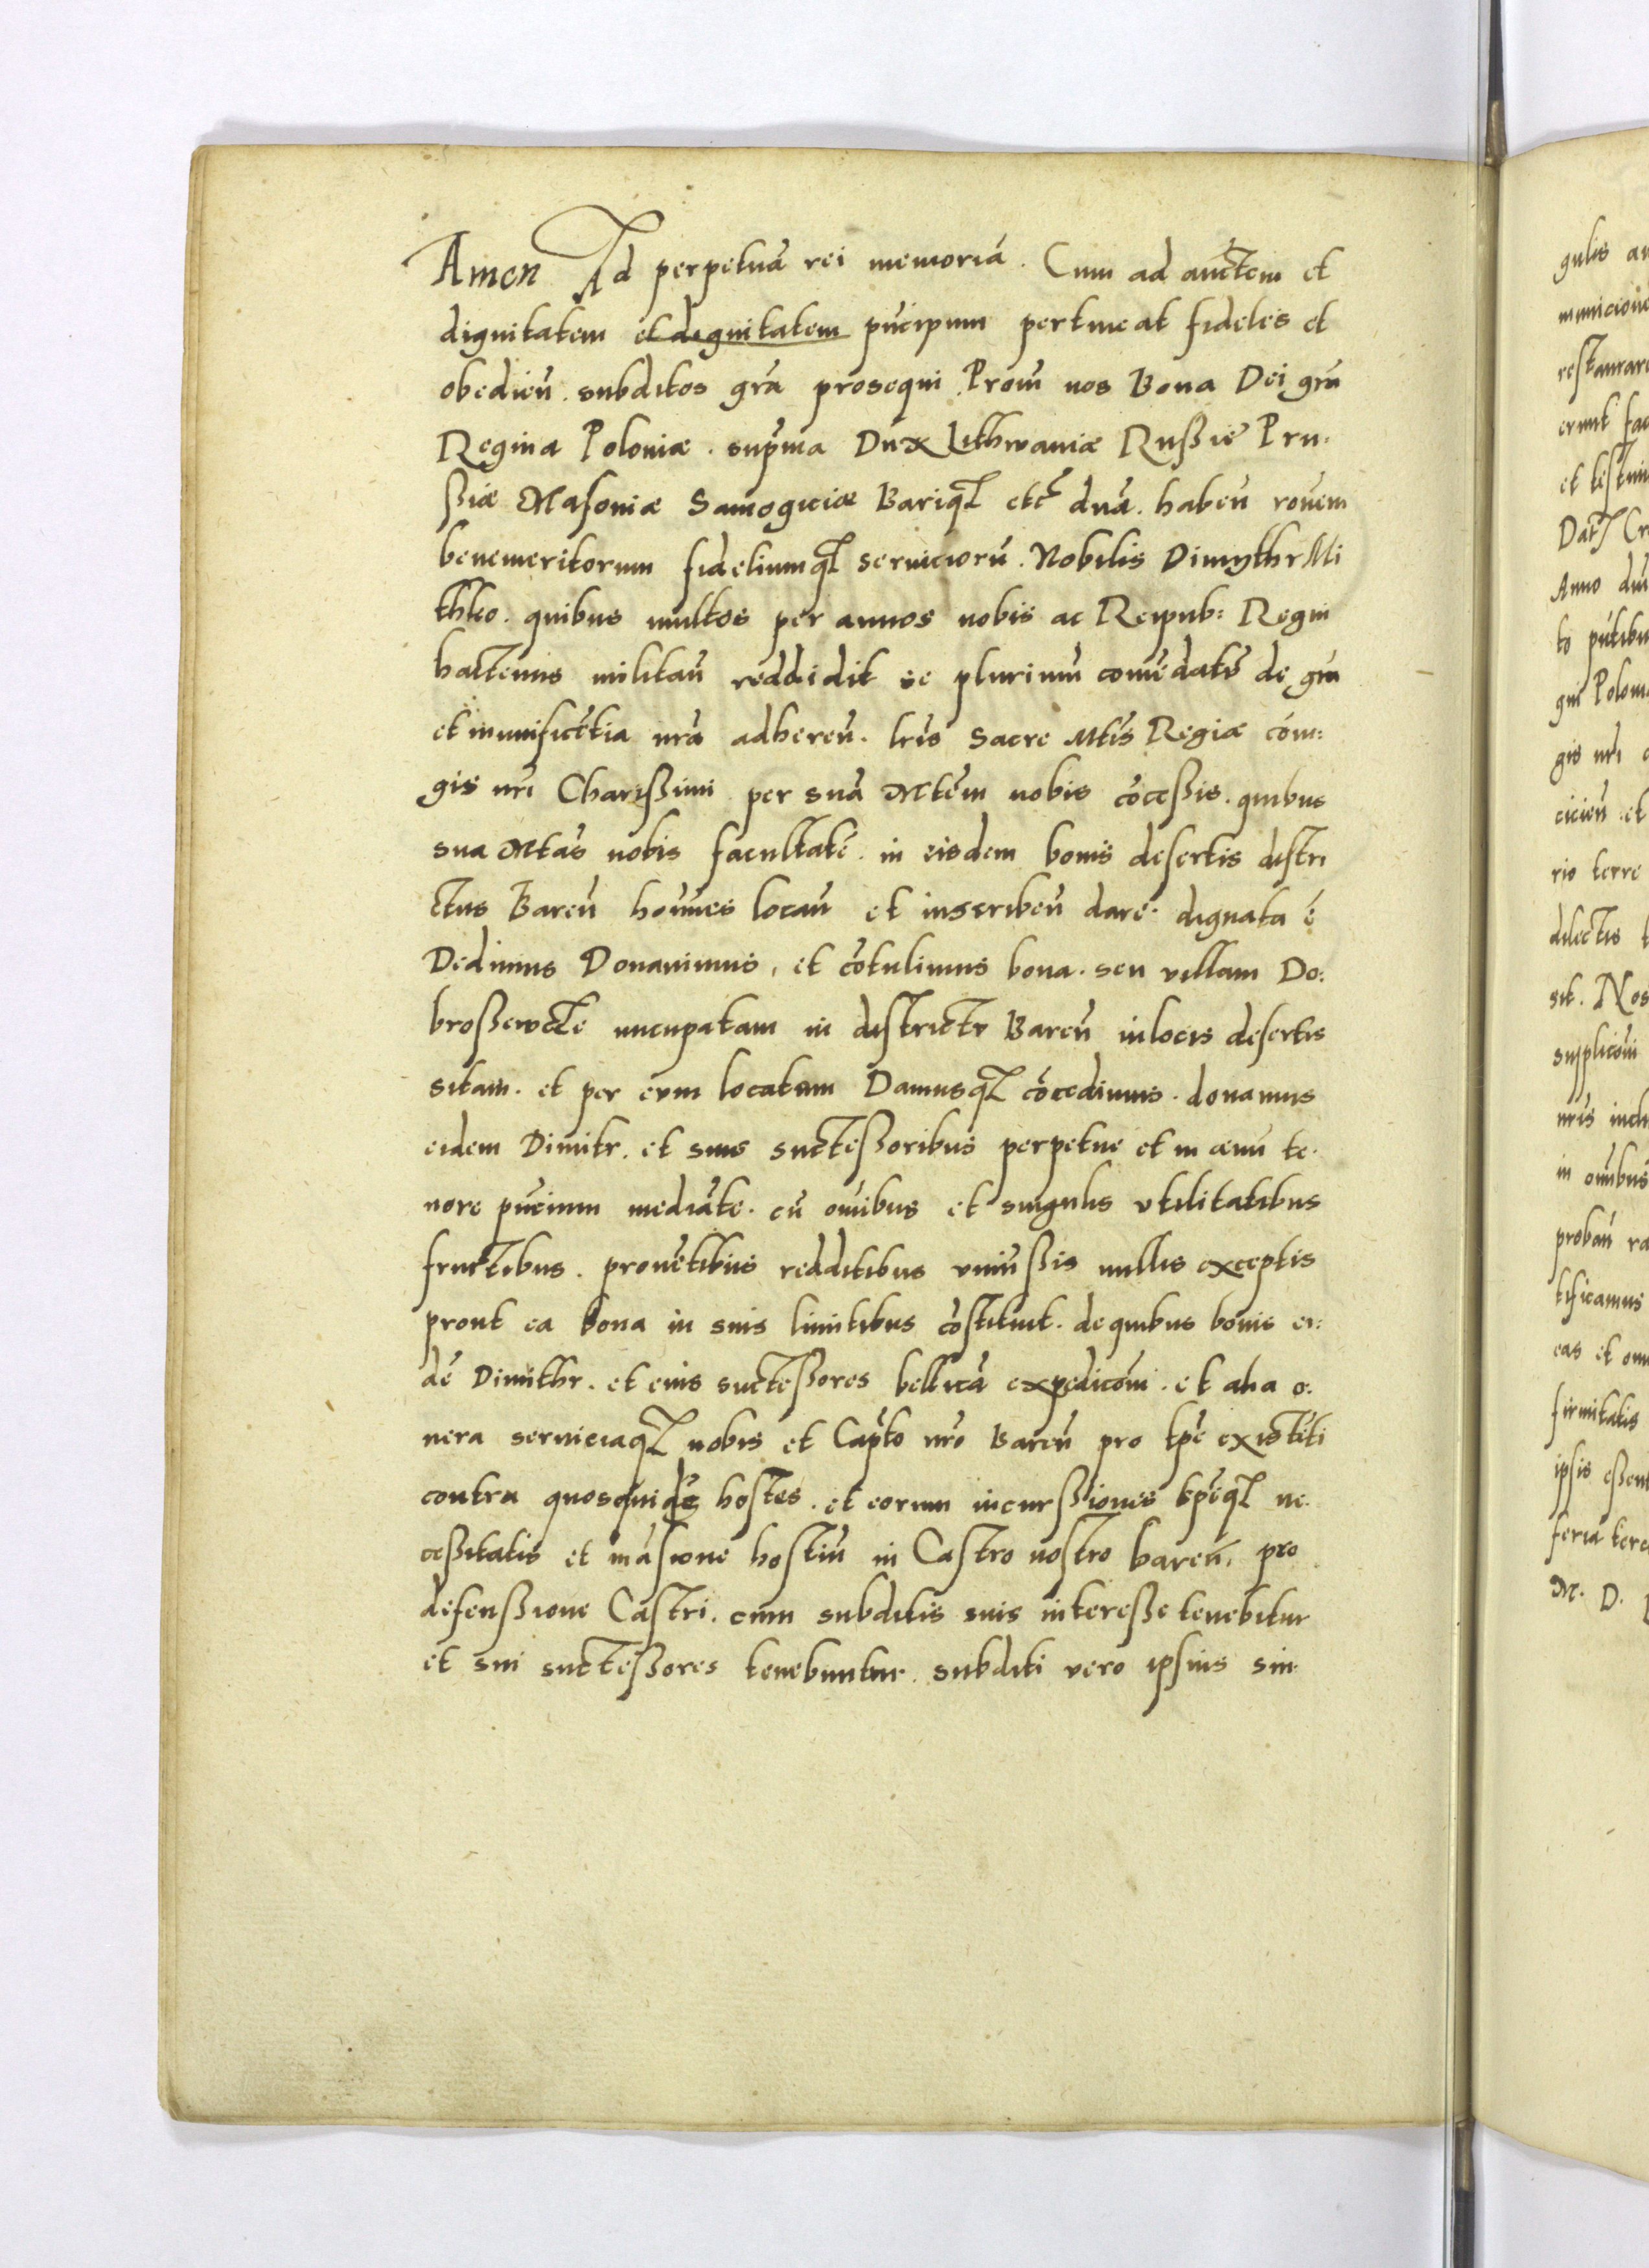 Amen Ad perpetuā rei memoriā. Cum ad auctem̄ et
dignitatem et dignitatem pn̄cipum pertineat fideles et
obedien̄. subditos gr̄a prosequi. Proin̄ nos Bona Dei gr̄a
Regina Poloniæ. supr̄ma Dux Lithwaniæ Rußiē Pru:
ßiæ Masoniæ Samogiciæ Bariq₃ etc̄ dn̄a. haben̄ ro͞nem
benemeritorum fideliumq₃ seruiciorū. Nobilis Dimythr Mi
thko. quibus multos per annos nobis ac Reipub: Regni
hactenus militan̄ reddidit se plurimū comēdatū de gr̄a
et munificētia nr̄a adheren̄. lr̄is Sacre Mt̄is Regiæ cōiu:
gis nr̄i Charißimi per suā Mt̄em nobis cōceßis. quibus
sua Mt̄as nobis facultatē. in eisdem bonis desertis distri
ctus Baren̄ ho͞ines locan̄ et inscriben̄ dare. dignata ē
Dedimus Donauimus, et cōtulimus bona. seu villam Do:
broßewcze nuncupatam in districtu Baren̄ in locis desertis
sitam. et per eum locatam Damusq₃ cōcedimus. donamus
eidem Dimitr. et suis succeßoribus perpetue et in æuū te.
nore pn̄cium mediāte. cū om̄ibus et singulis vtilitatibus
fructibus. prouētibus redditibus vniuerßis nullis exceptis
prout ea bona in suis limitibus cōstituit. de quibus bonis ei:
dē Dimithr. et eius succeßores bellicā expedico͞m. et alia o:
nera seruiciaq₃ nobis et Cap̄to nr̄o Baren̄ pro tp̄e existēti
contra quosquidē hostes. et eorum incurßiones tp̄eq₃ ne.
ceßitatis et inuāsione hostiū in Castro nostro baren̄, pro
defenßione Castri. cum subditis suis intereße tenebitur
et sui succeßores tenebuntur. subditi vero ipsius sin.